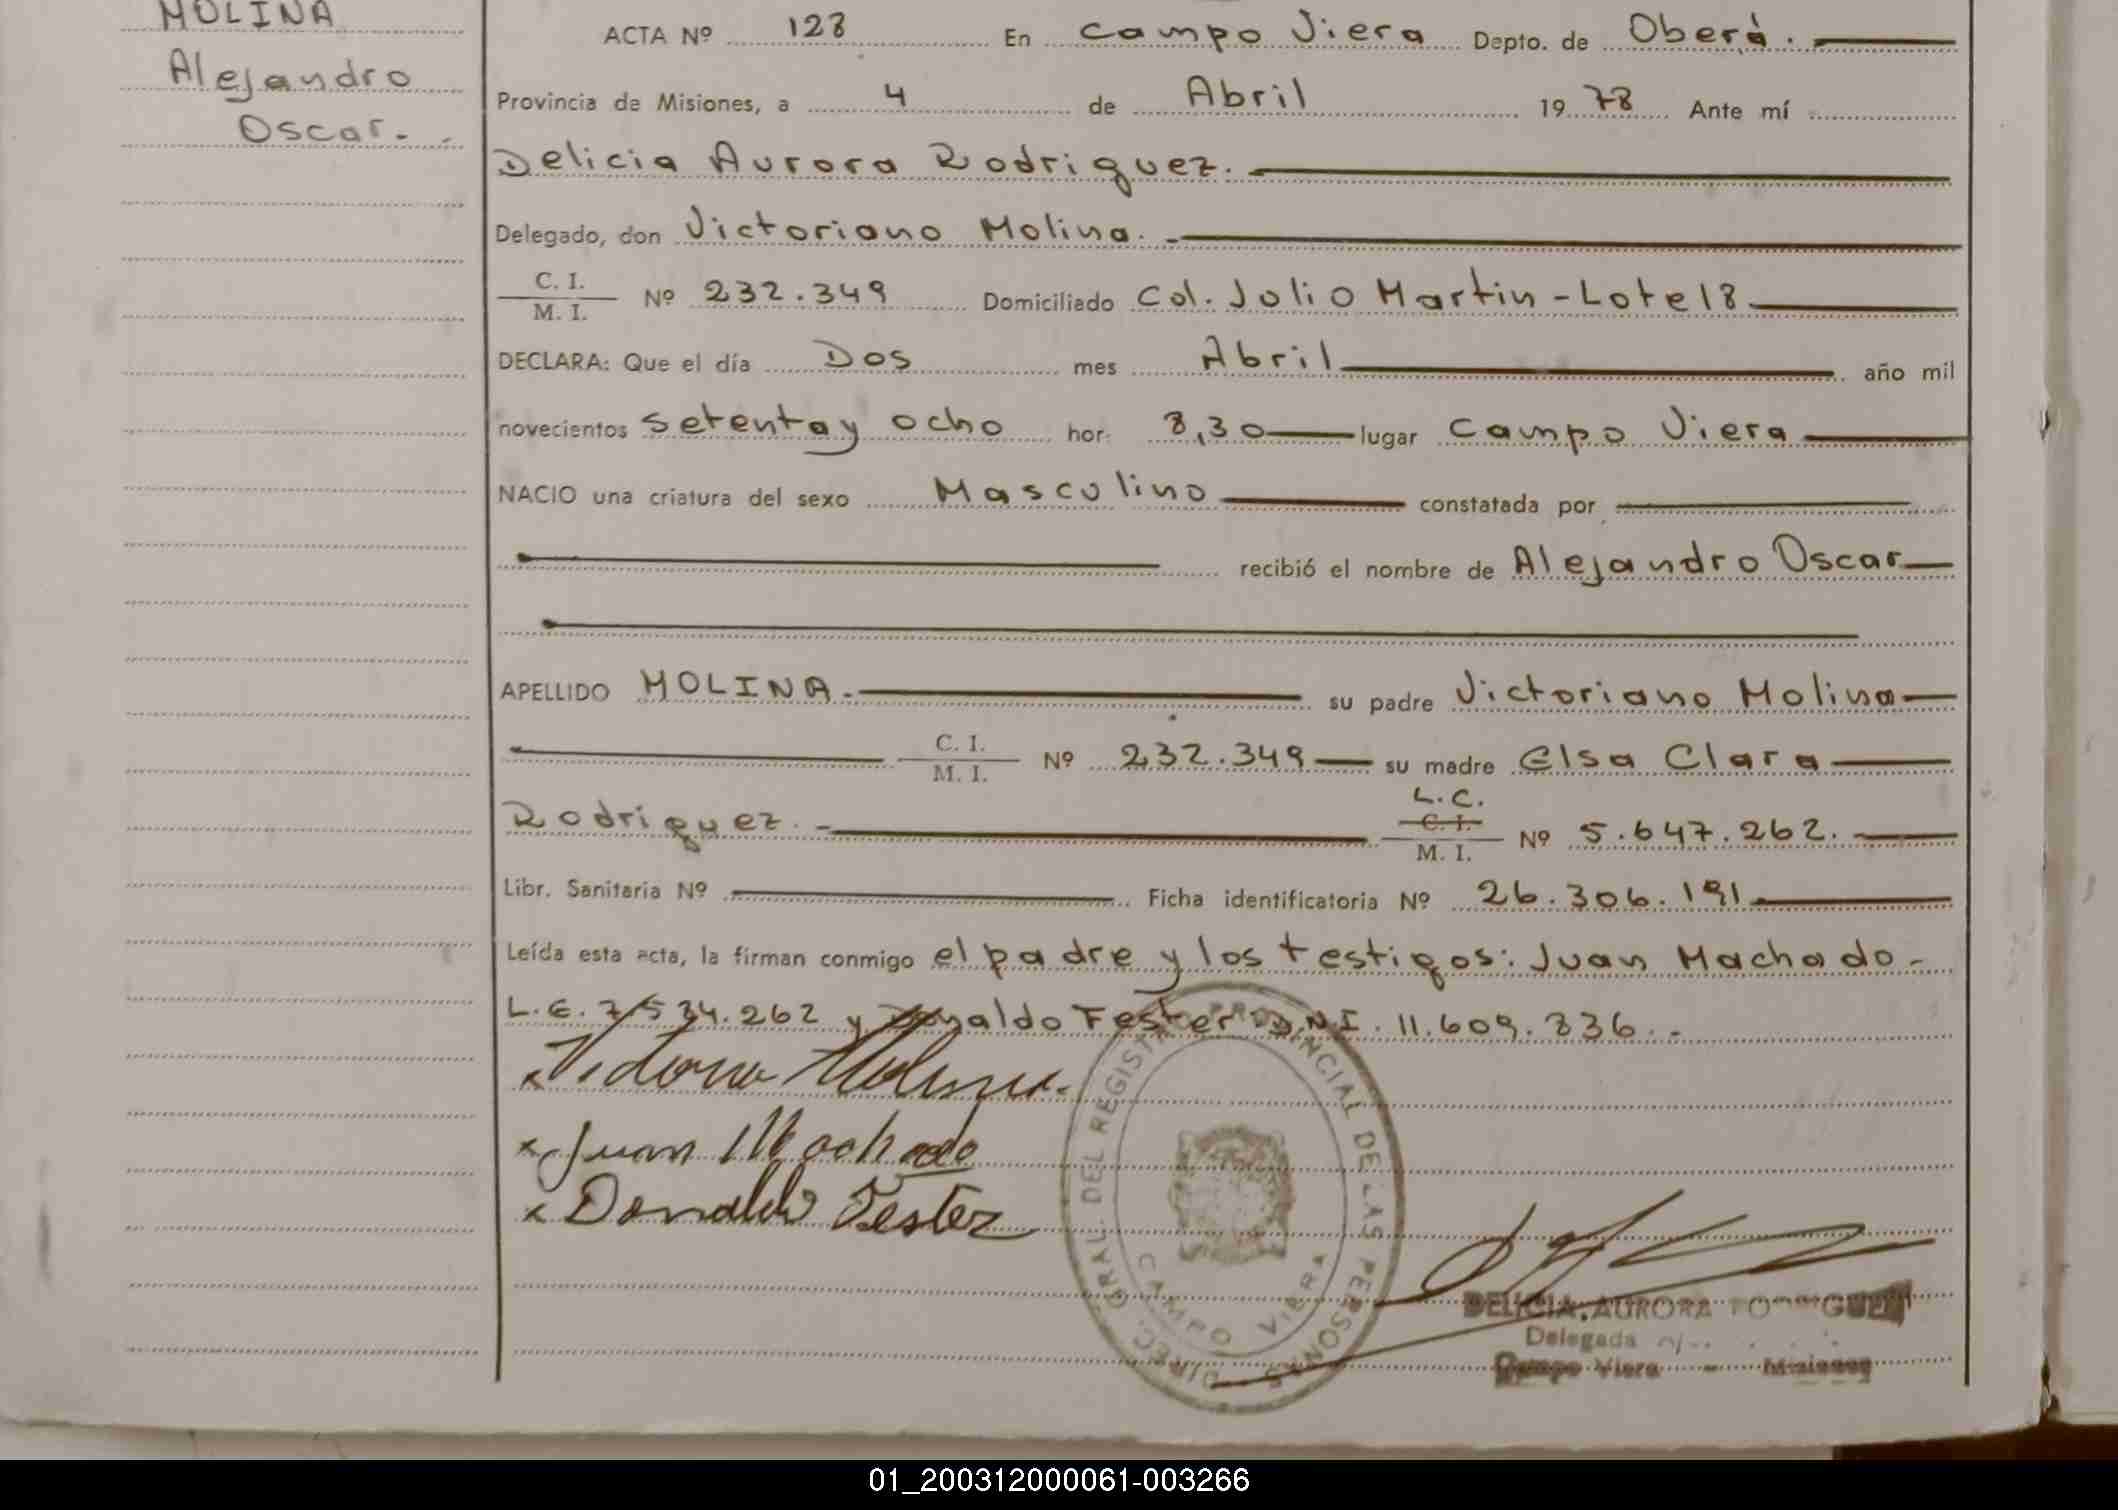 MOLINA
Alejandro
Oscar.-.
ACTA Nº 128 En Campo Viera Depto. de Oberá.
Provincia de Misiones, a 4 de Abril 1978 Ante mí
Delicia Aurora Rodriguez.
Delegado, don Victoriano Molina.
C. I.
M. I. Nº 232.349 Domiciliado Col. Julio Martin - Lote 18
DECLARA: Que el día Dos mes Abril año mil
novecientos setenta y ocho hor. 8,30 lugar Campo Viera
NACIO una criatura del sexo Masculino constatada por
recibió el nombre de Alejandro Oscar
APELLIDO MOLINA.- su padre Victoriano Molina
C. I.
M. I. Nº 232.349 su madre Elsa Clara
L.C.
Rodriguez.- C. I.
M. I. Nº 5.647.262.-
Libr. Sanitaria Nº Ficha identificatoria Nº 26.306.191
Leída esta acta, la firman conmigo el padre y los testigos: Juan Machado-
L.E. 7.534.262 y Donaldo Fester D.N.I. 11.609.836.-
x Victoriano Molina.
x Juan Machado
x Donaldo Fester
DIREC. GRAL. DEL REGISTRO PROVINCIAL DE LAS PERSONAS
CAMPO VIERA
DELICIA AURORA RODRIGUEZ
Delegada
Campo Viera - Misiones
01_200312000061-003266